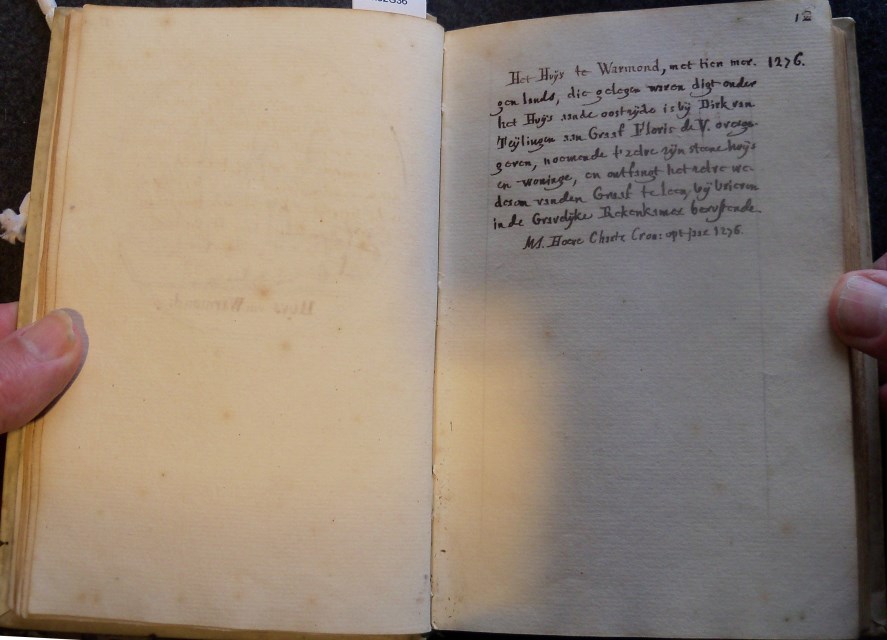 Het Huÿs te Warmond, met tien mor. 1276.
gen lands, die gelegen waren digt onder
het Huÿs aande oostzijde is bij Dirk van
Teÿlingen aan Graaf Floris de V. overge-
geven, noemende t'zelve zijn steene huÿs
en woninge, en ontfangt het zelve we-
derom vanden Graaf te leen, bij brieven
in de Gravelijke Rekenkamer berustende.
MS. Chron: opt jaar 1276.